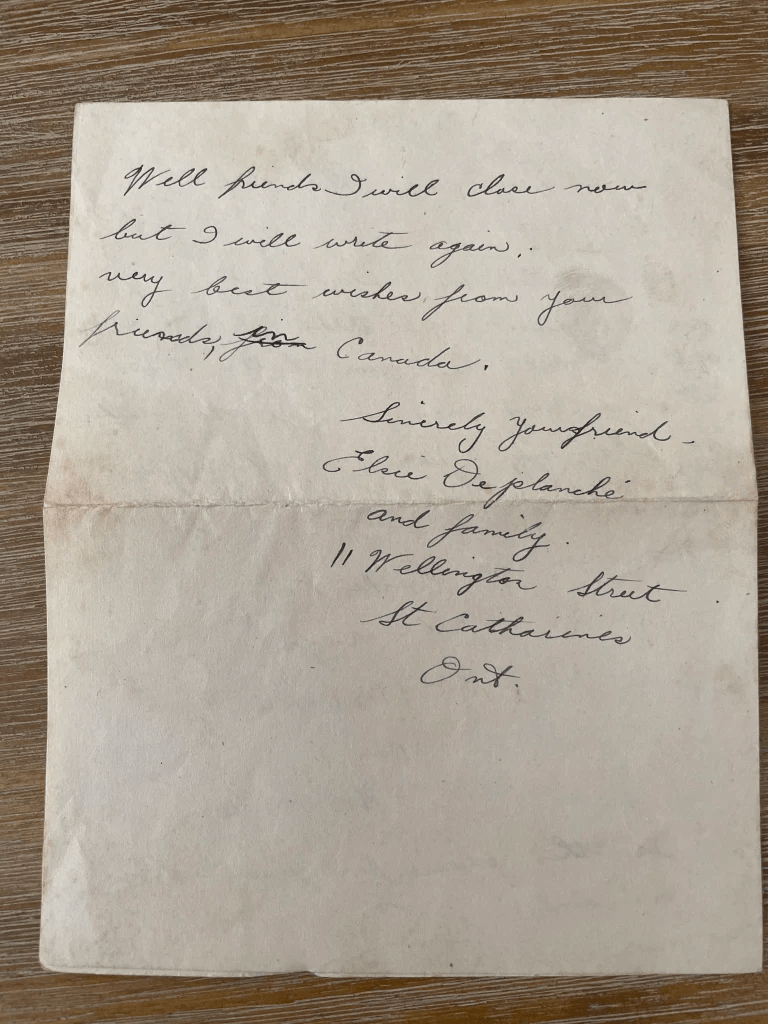 Well friends I will close now
but I will write again.
very best wishes from your
friends, in from Canada.
Sincerely your friend -
Elsie Deplanché
and family.
11 Wellington Street
St Catharines
Ont.